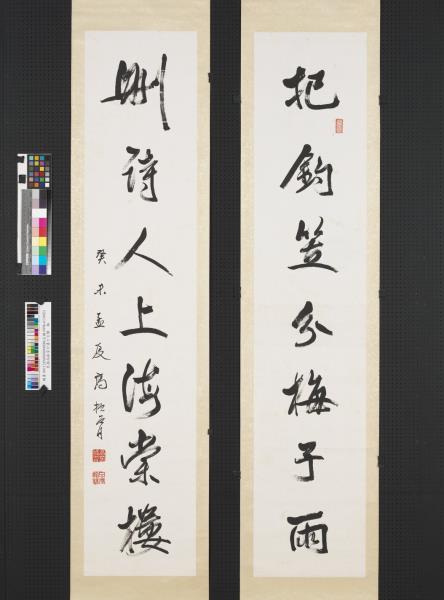 把釣笠分梅子雨
刪詩人上海棠樓
癸未孟夏高振霄